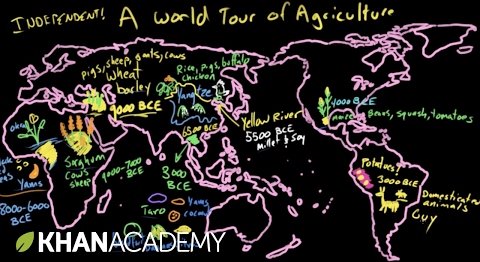 INDEPENDENT! A World Tour of Agriculture
pigs, sheep, goats, cows
wheat
barley
9000 BCE
Rice, pigs, buffalo
chicken
Yangtze
6500 BCE
Yellow River
5500 BCE
Millet & Soy
4000 BCE
Beans, squash, tomatoes
okra
Sorghum
cows
sheep
Yams
8000-6000
BCE
3000
BCE
Taro
Yams
coconut
Potatoes!
3000 BCE
Domesticated
animals
Guy
KHANACADEMY